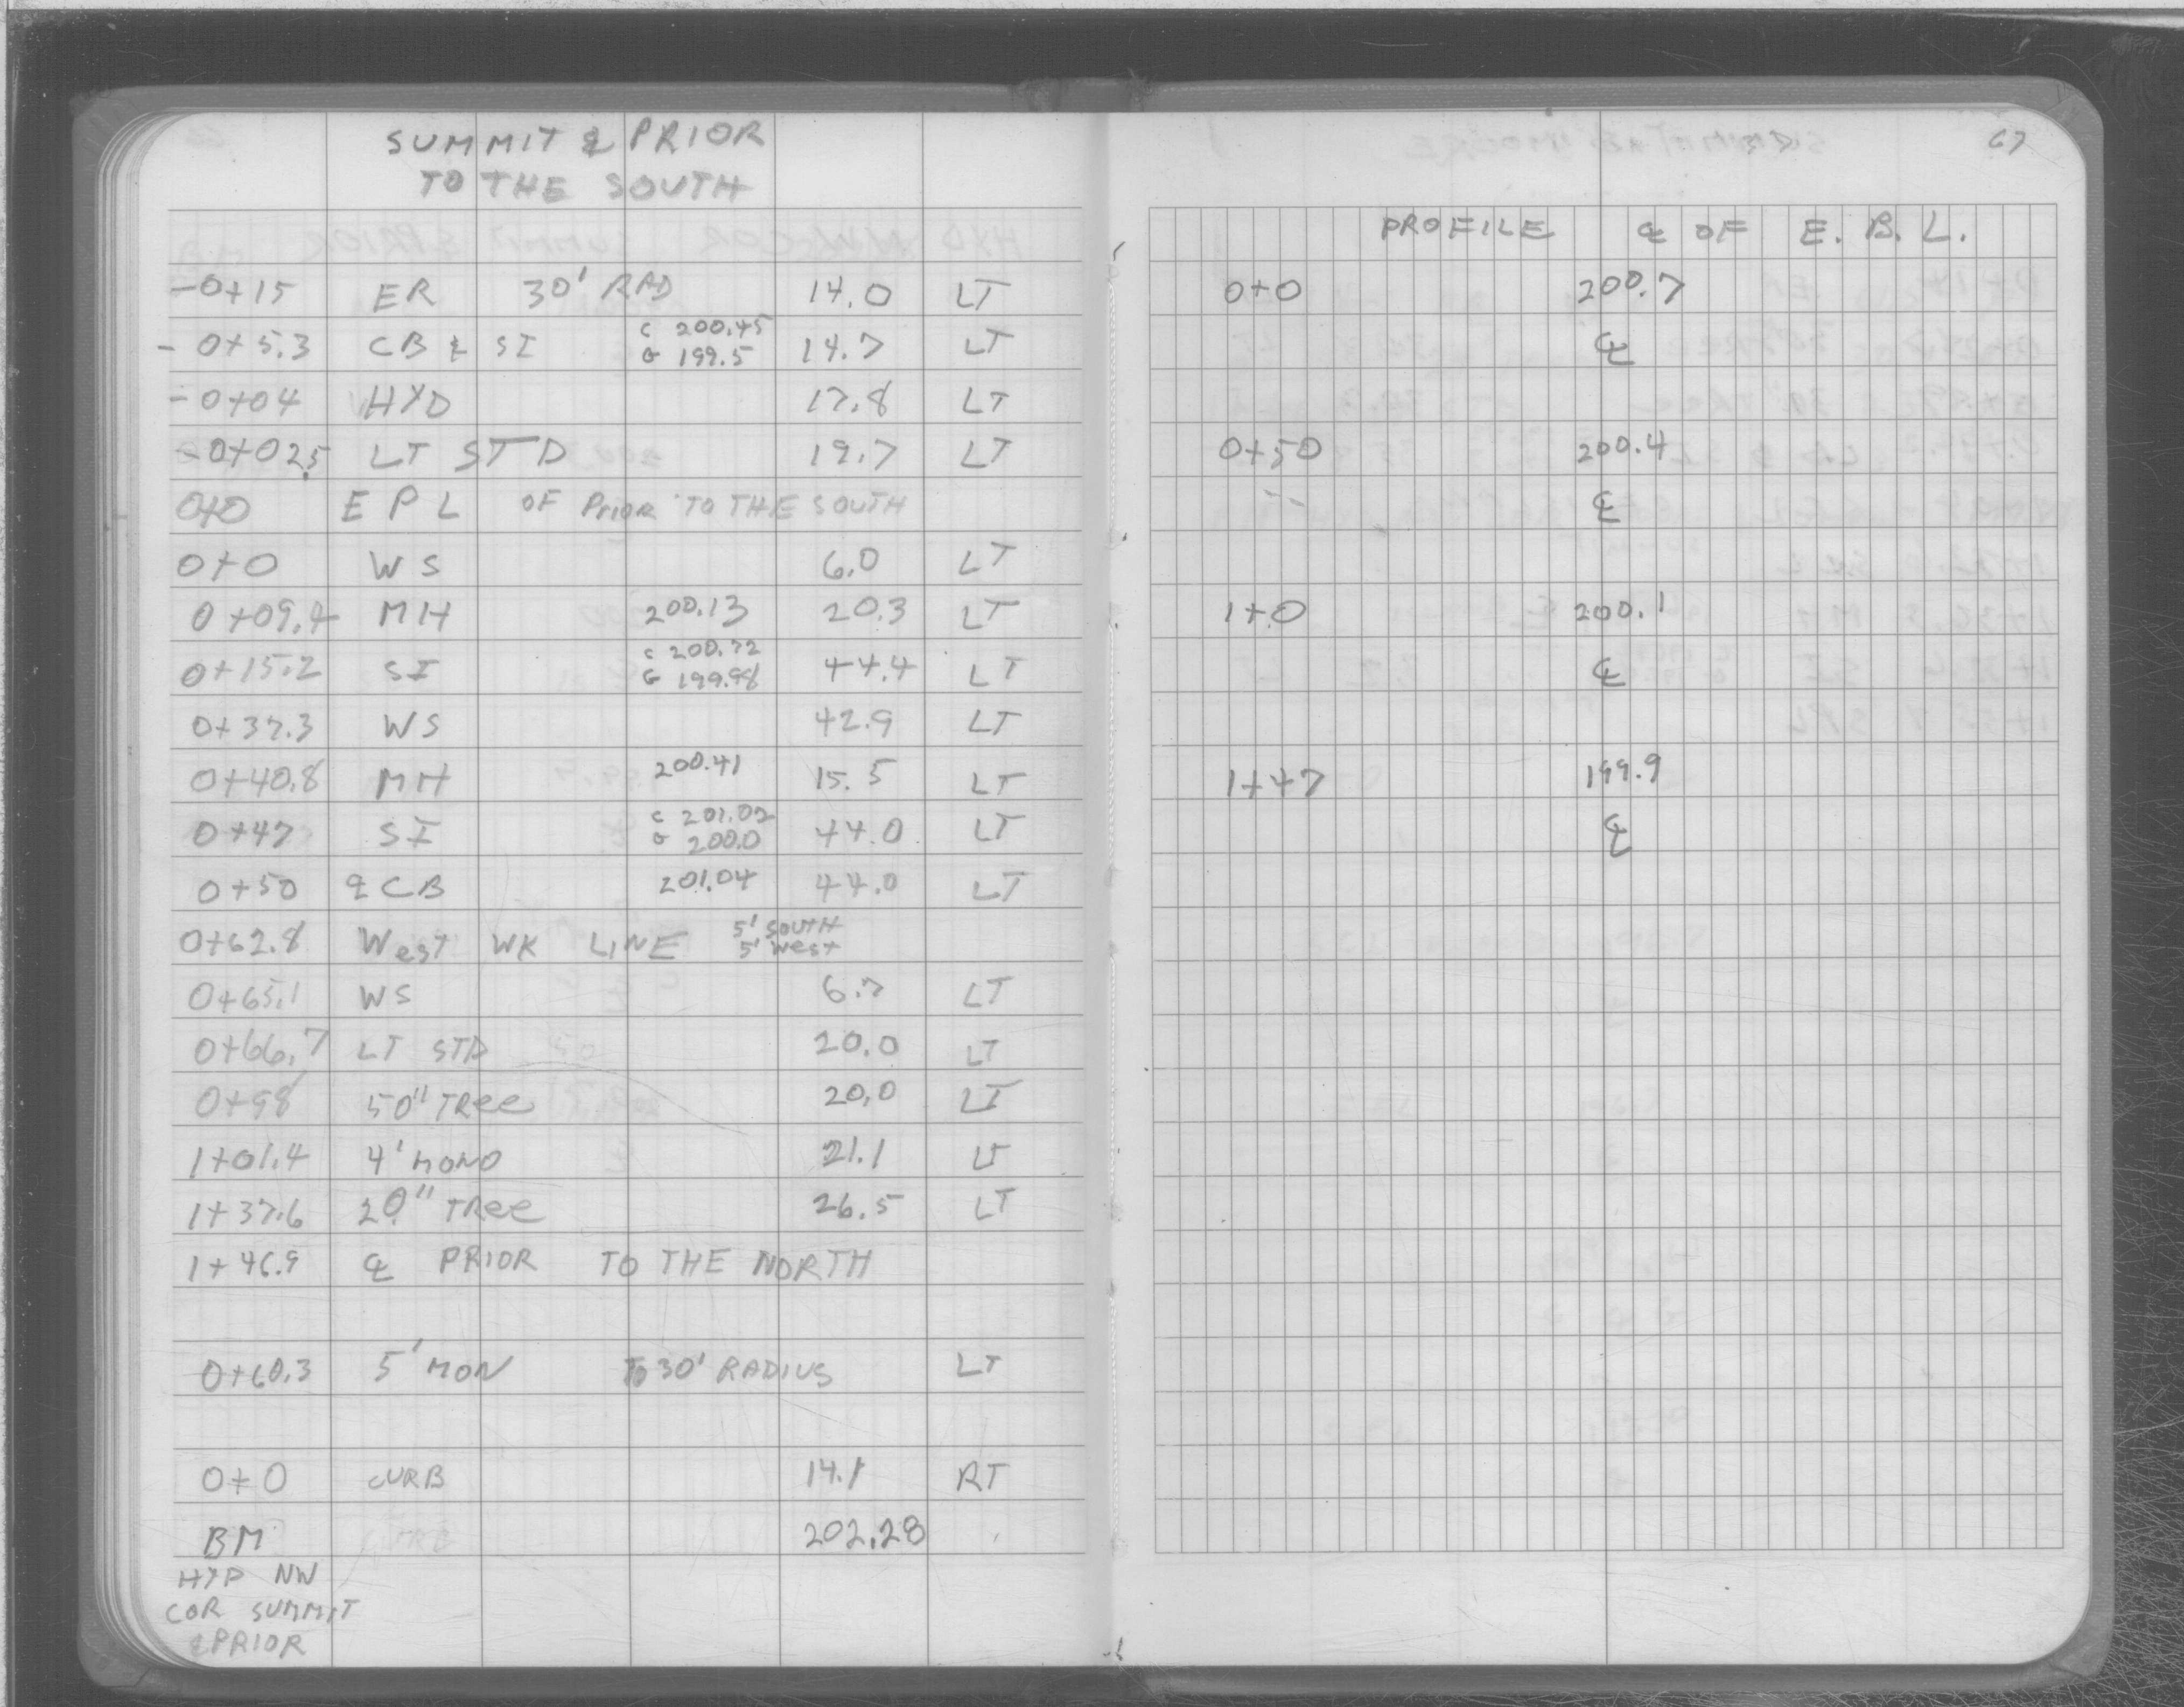 SUMMIT & PRIOR
TO THE SOUTH
-0+15 ER 30' RAD 14.0 LT
-0+5.3 CB & SI C 200.45 G 199.5 14.7 LT
-0+04 HYD 17.8 LT
-0+02.5 LT STD 19.7 LT
0+0 E P L OF Prior TO THE SOUTH
0+0 WS 6.0 LT
0+09.4 MH 200.13 20.3 LT
0+15.2 SI C 200.72 G 199.98 44.4 LT
0+37.3 WS 42.9 LT
0+40.8 MH 200.41 15.5 LT
0+47 SI C 201.02 G 200.0 44.0 LT
0+50 ℄ CB 201.04 44.0 LT
0+62.8 West WK LINE 5' SOUTH 5' West
0+65.1 WS 6.7 LT
0+66.7 LT STD 20.0 LT
0+98 50" TRee 20.0 LT
1+01.4 4' MONO 21.1 LT
1+37.6 20" TRee 26.5 LT
1+46.9 ℄ PRIOR TO THE NORTH
0+60.3 5' MON To 30' RADIUS LT
0+0 CURB 14.1 RT
BM 202.28
HYD NW
COR SUMMIT
& PRIOR
67
PROFILE ℄ OF E. B. L.
0+0 200.7
℄
0+50 200.4
℄
1+0 200.1
℄
1+47 199.9
℄